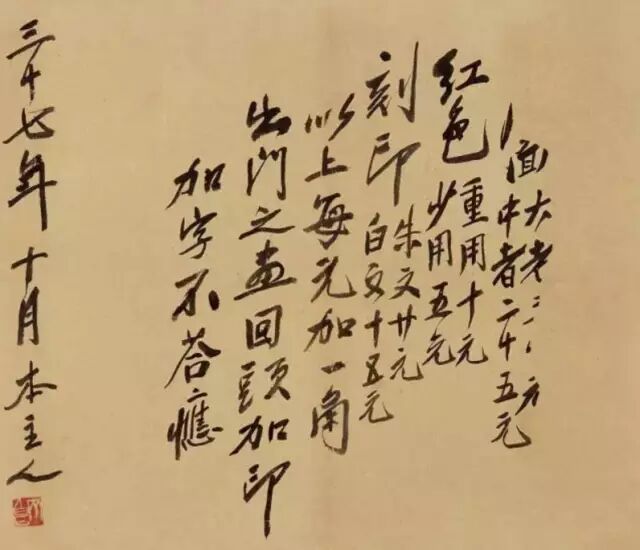 面大者元
中者二十五元
紅色重用十元
少用五元
刻印朱文廿元
白文十五元
以上每元加一角
出門之畫回頭加印
加字不荅應
三十七年十月本主人